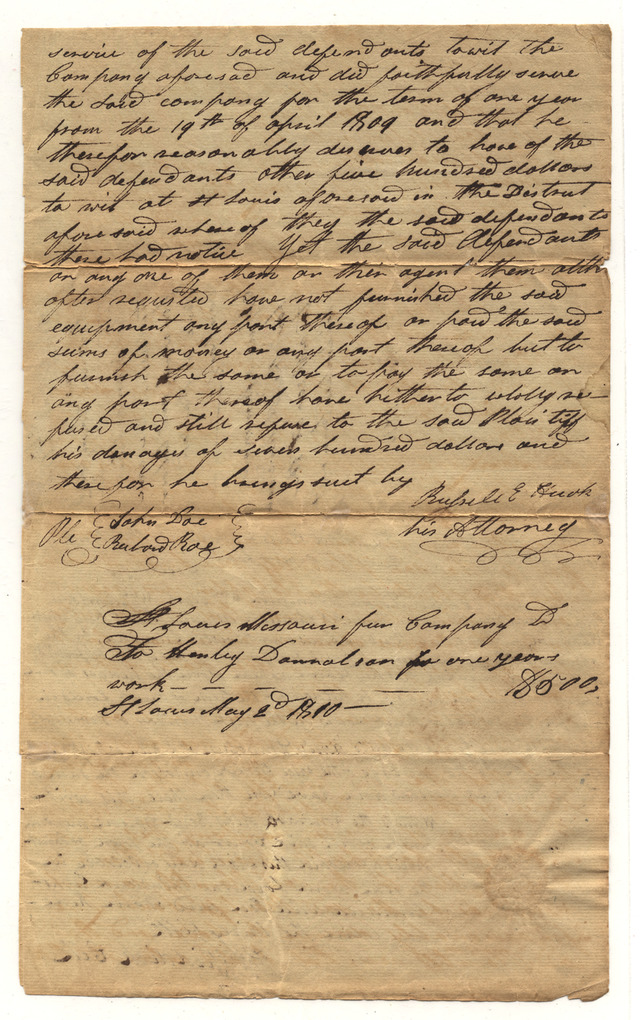 service of the said defendants towit the
Company aforesad and did faithfully serve
the said company for the term of one year
from the 19th of april 1809 and that he
therefor reasonably deserves to have of the
said defendants other five hundred dollars
to wit at St Louis aforesaid in the District
aforesaid whereof they the said defendants
there had notice Yet the said defendants
or any one of them or their agent them altho
often requested have not furnished the said
equipment any part thereof or paid the said
sums of money or any part thereof but to
furnish the same or to pay the same or
any part thereof have hitherto wholy re
fused and still refuse to the said Plaintiff
his damages of seven hundred dollars and
there for he brings suit by
Russell E Hicok
his Attorney
Ple John Doe
Richard Roe
St Louis Missouri fur Company Dr
To Henley Donnalson for one years
work - - - - - $500,
St Louis May 2d 1810 -